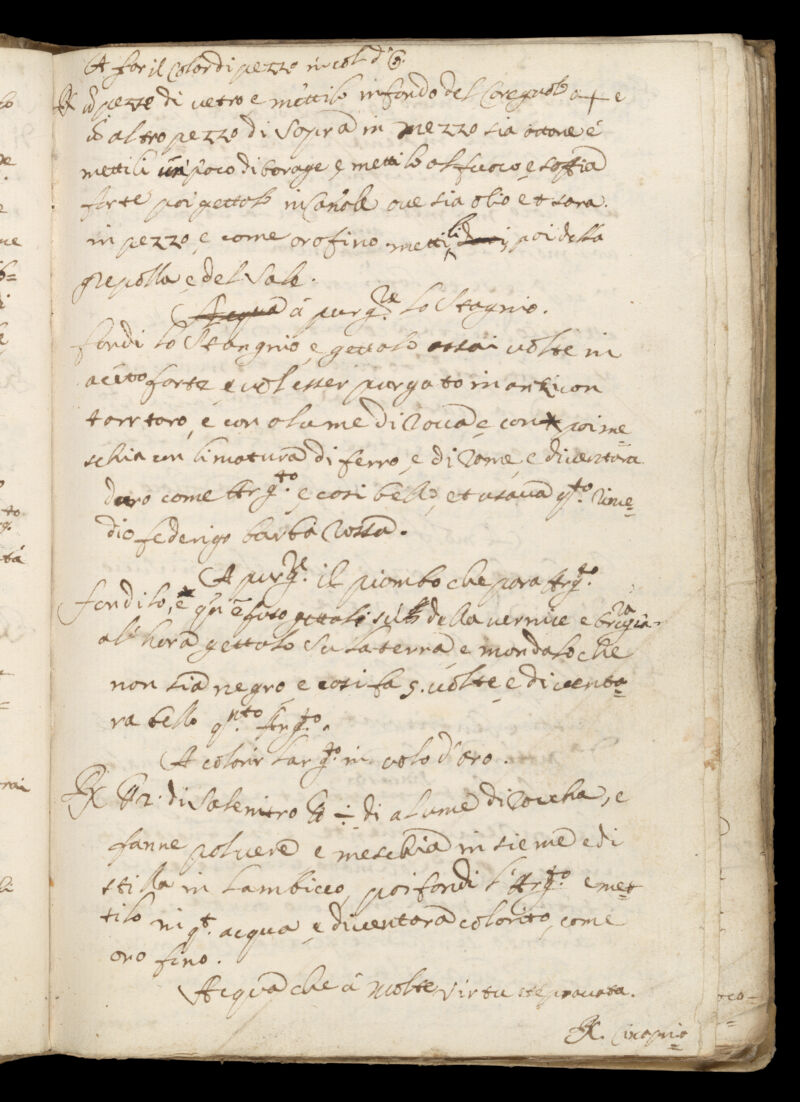 A far il Color di pezzo in col d'
pezze di vetro e mettilo in fondo del Coregiuolo a+ e
altro pezzo di sopra in mezzo sia ottone é
mettili un poco di borage e mettilo al fuoco e soffia
forte poi gettalo in Canale ove sia olio et sara
in pezzo, e come oro fino metti li poi della
grepolla e del Sale.
Acqua á purg.re lo Stagnio.
fondi lo Stangnio, e gettalo assai volte in
aceto forte e vol esser purgato inanzi con
tarrtaro, e con alume di Rocca e con poi me=
schia con limatura di ferro, e di rame, e diventara
duro come Arg.to, e cosi bello, et usava q.to rime=
dio federigo barba Rossa.
A purg.re il piombo che para Arg.to
fondilo, e qñ é fuso gettali sú della vernice e
al'hora gettalo Su la terra e mondalo che
non sia negro, e cosi fa 5. volte e diventa=
ra bello q.nto Arg.to.
A colorir l'arg.to in colo d'oro.
2. di Salenitro di alume di roccha, e
fanne polvere e meschia insieme e di
stilla in Lambicco, poi fondi l'Arg.to e met=
tilo in q.t acqua, e diventara colorito, come
oro fino.
Acqua che á molte virtu et é provata.
R. cinaprio=